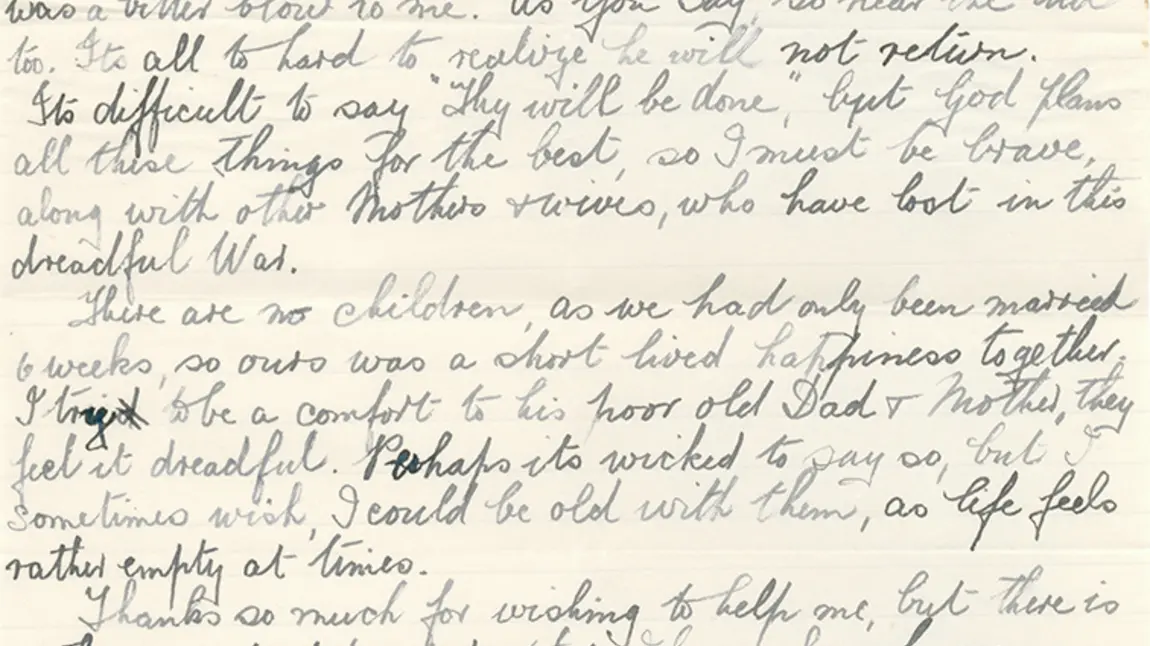 was a bitter blow to me. As you say, so near the
too. Its all to hard to realize he will not return.
Its difficult to say "Thy will be done," but God plans
all these things for the best, so I must be brave,
along with other Mothers & wives, who have lost in this
dreadful War.
There are no children, as we had only been married
6 weeks, so ours was a short lived happiness together.
I try to be a comfort to his poor old Dad & Mother, they
feel it dreadful. Perhaps its wicked to say so, but I
sometimes wish, I could be old with them, as life feels
rather empty at times.
Thanks so much for wishing to help me, but there is